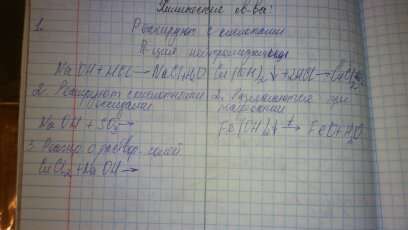 Химические св-ва:
1.
Реагируют с кислотами
NaOH+HCl→NaCl+H2O Cu(OH)2↓+2HCl→CuCl2
2. Реагируют с кислотными 2. Разлагаются при
оксидами нагревании
NaOH+SO3→ Fe(OH)2↓ t→ FeO+H2O
3. Реагир. с раствор. солей
CuCl2+NaOH→